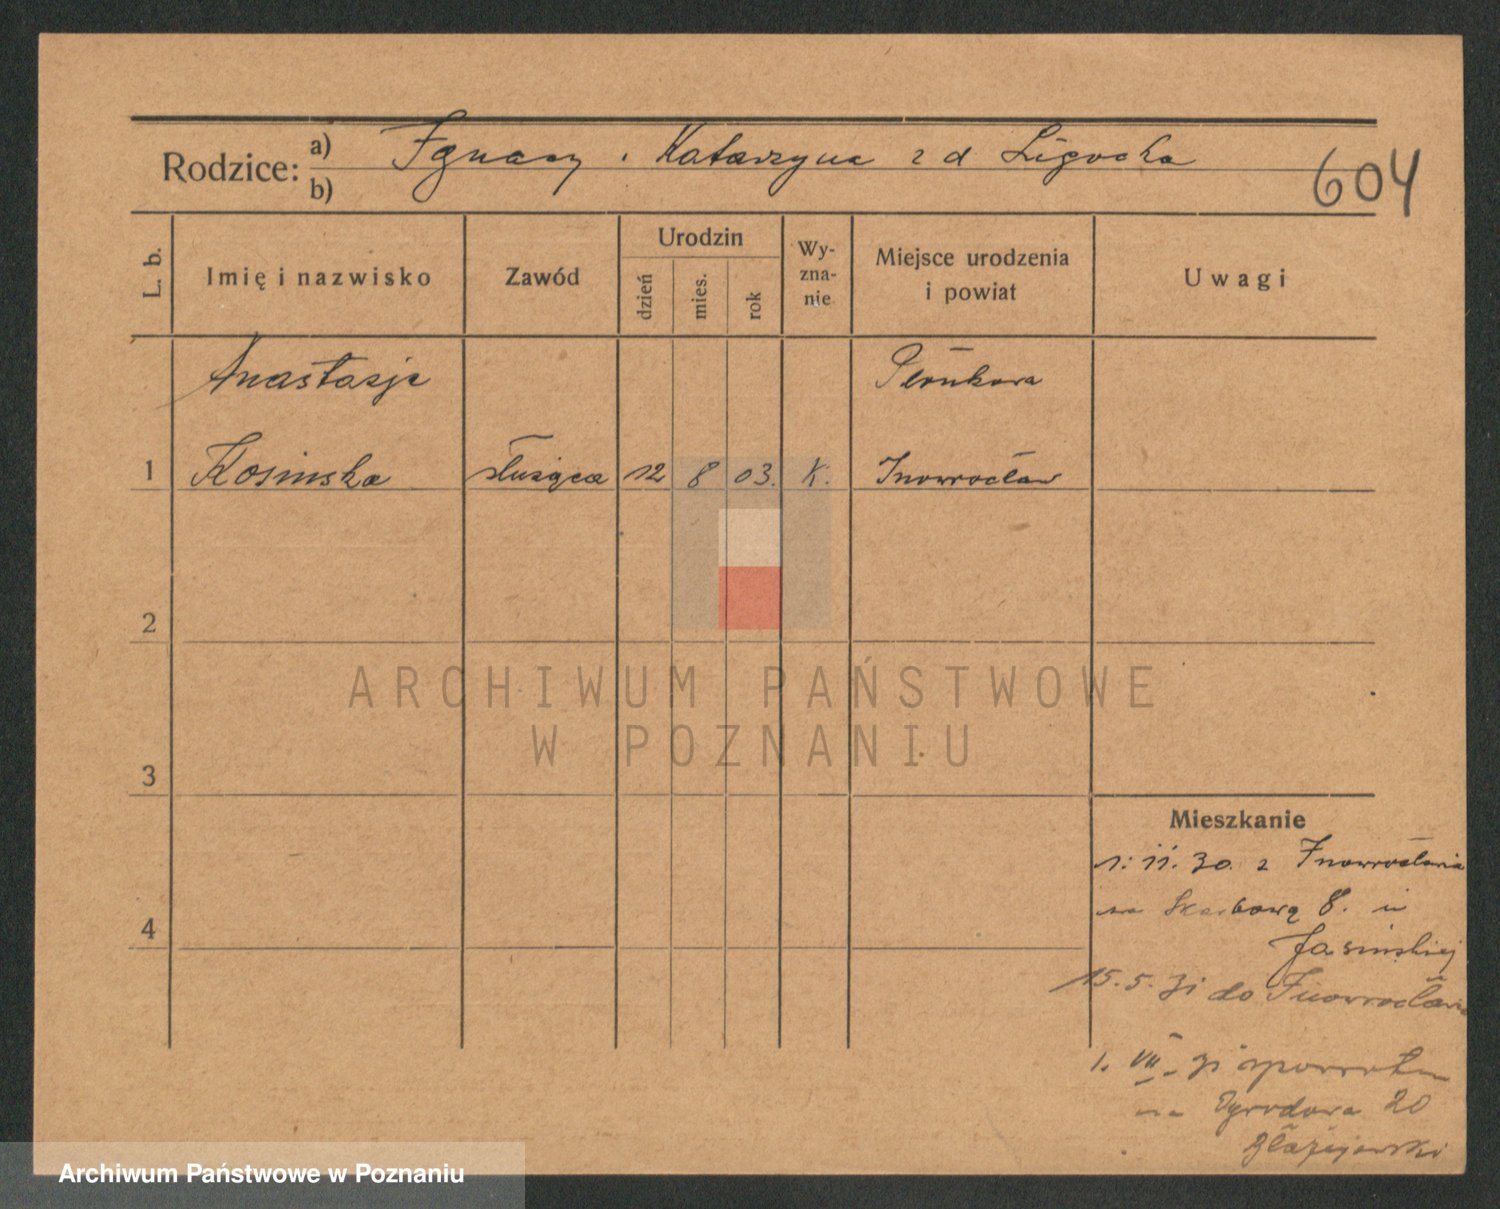 Rodzice: a) Ignacy i Katarzyna z d Ligocka
b)
604
L. b.
Imię i nazwisko
Zawód
Urodzin
dzień
mies.
rok
Wy-
zna-
nie
Miejsce urodzenia
i powiat
Uwagi
Anastazja
Płonkowa
1 Kosinska służąca 12 8 03. K. Inowrocław
2
3
4
Mieszkanie
1. 11. 30. z Inowrocławia
na Skarbową 8. u
Jasinskiej
15. 5. 31 do Inowrocławia
1. VII. 31 spowrotem
na Ogrodowa 20
Błażejewski
ARCHIWUM PAŃSTWOWE
W POZNANIU
Archiwum Państwowe w Poznaniu